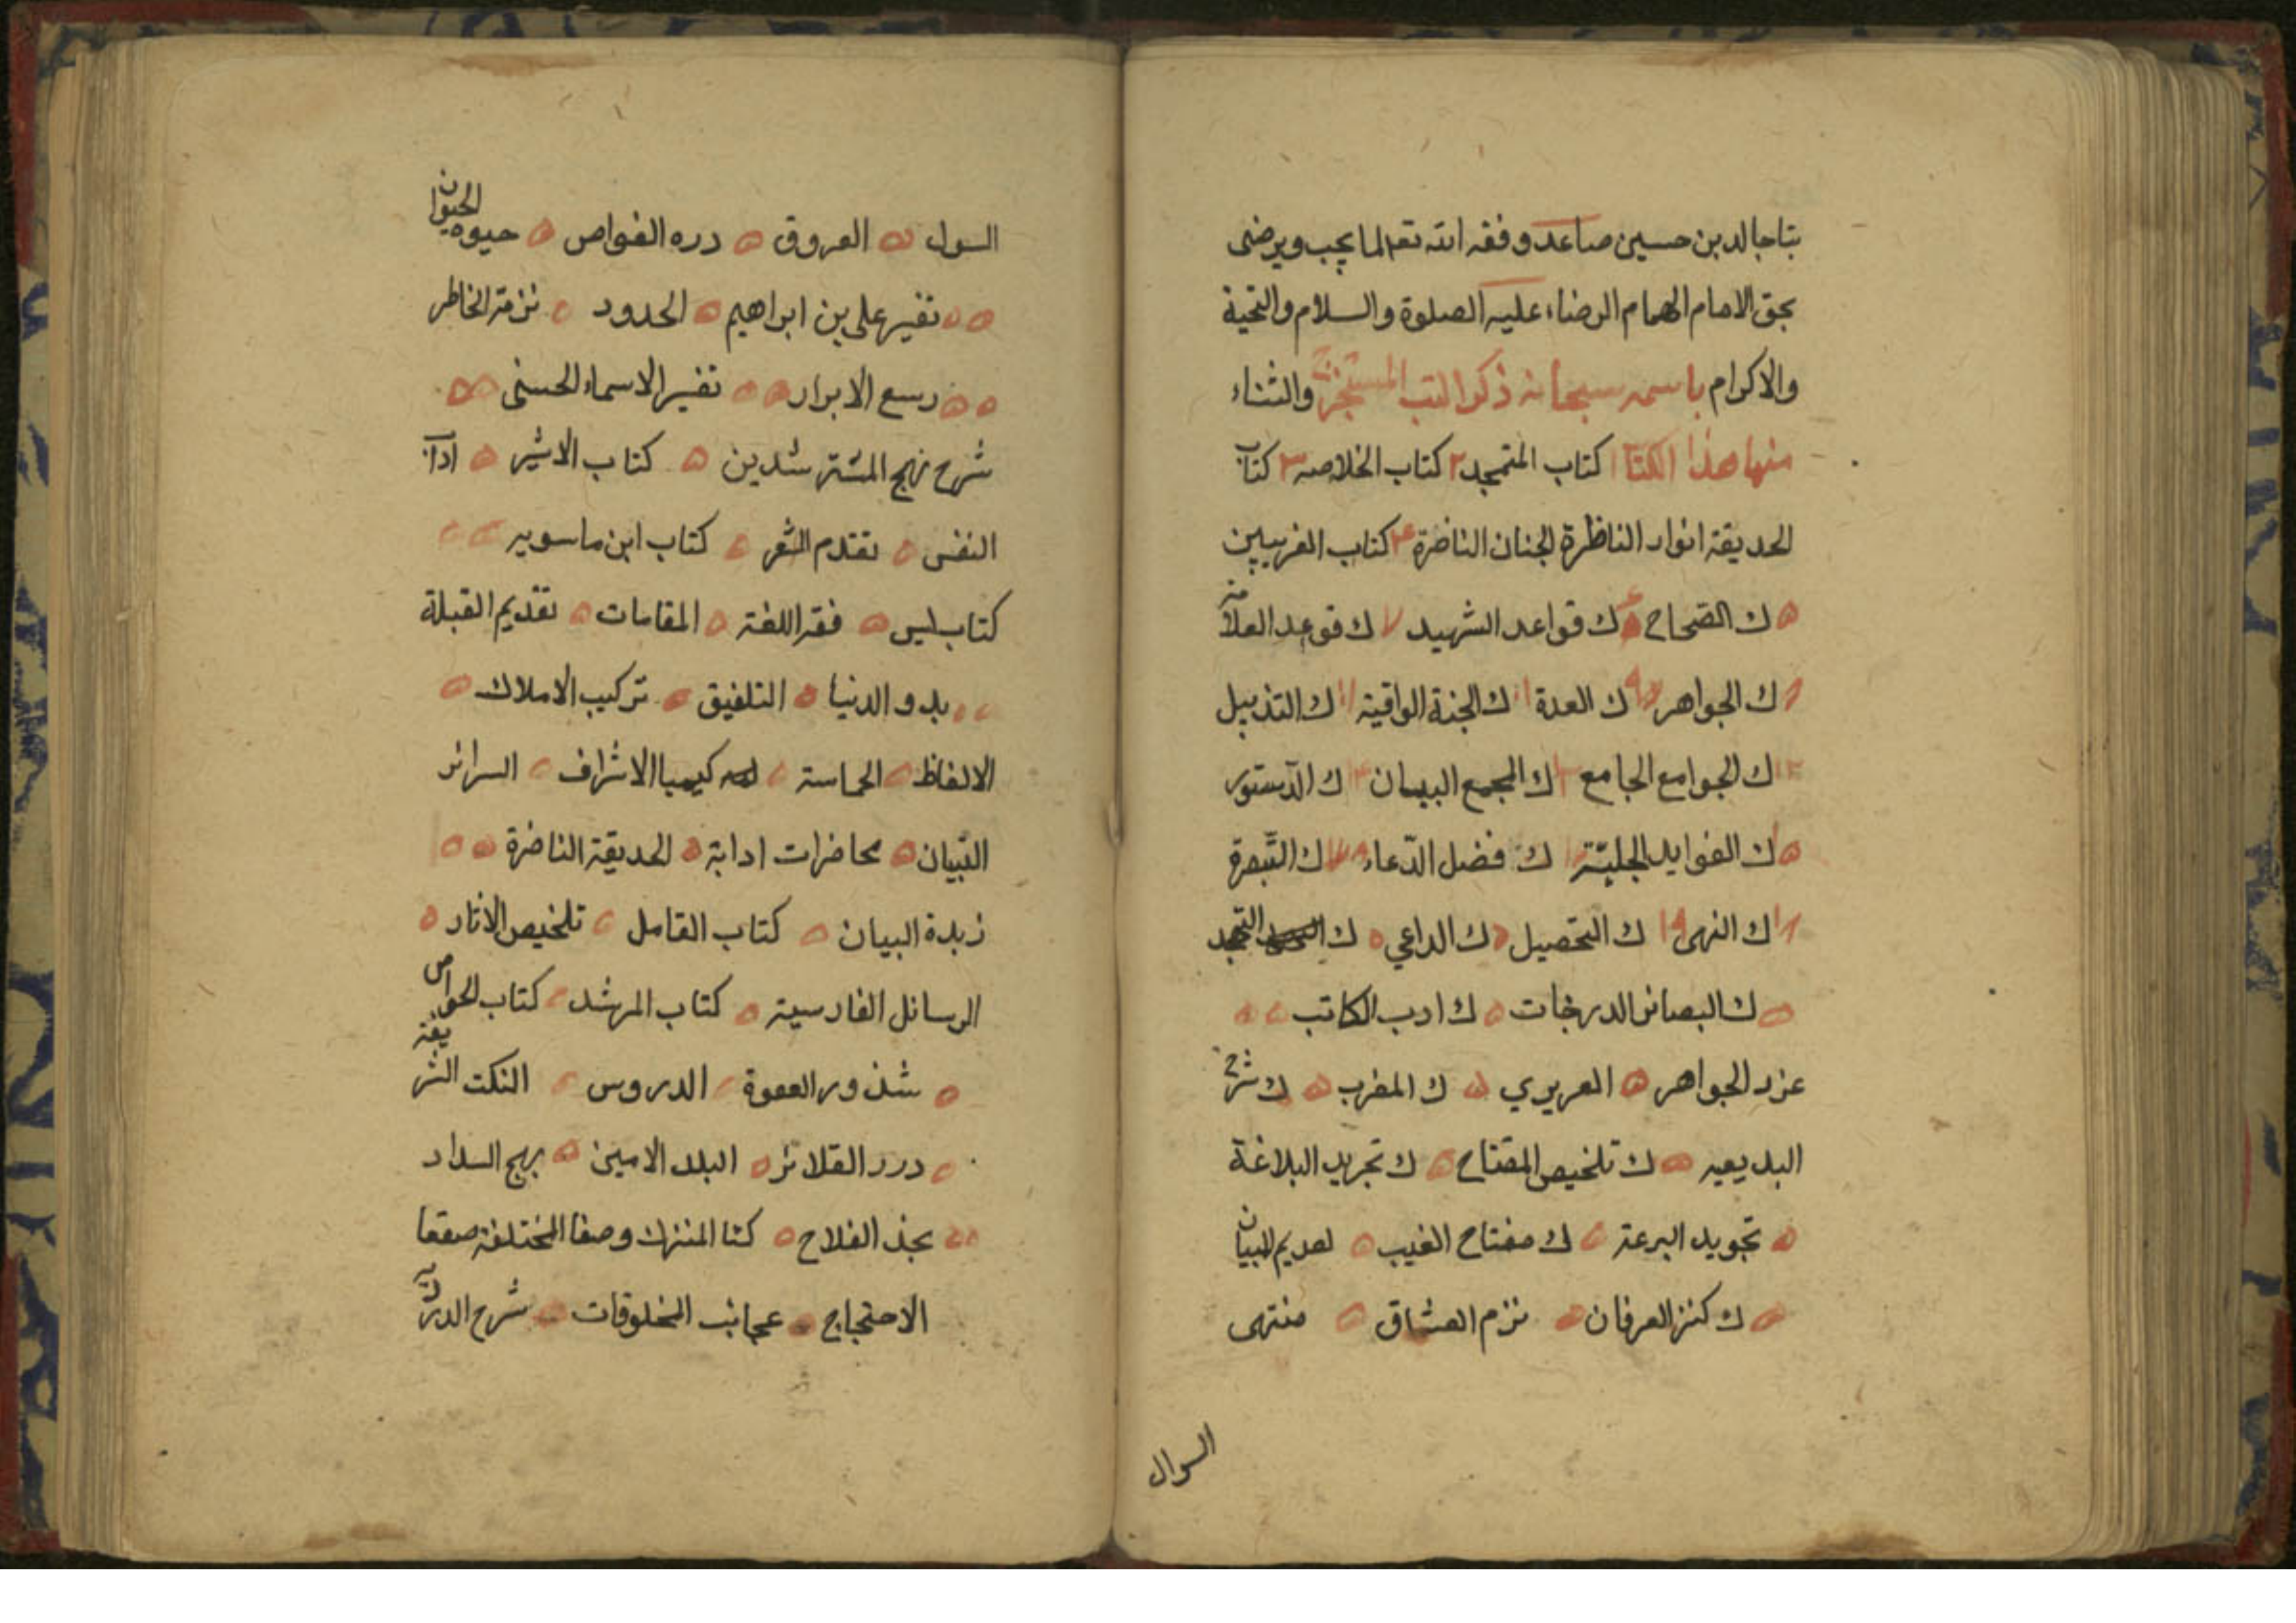 بتاجالدين حسين صاعد وفقه الله تعا لما يحب ويرضى
بحق الامام الهمام الرضاء عليه الصلوة والسلام والتحية
والاكرام باسمه سبحانه ذكر الكتب المستخرجة والثناء
منها هذا الكتا ١ كتاب المتهجد ٢ كتاب الخلاصه ٣ كتاب
الحديقة انوار الناظرة الجنان الناضرة ٤ كتاب الغريبين
٥ ك الصحاح ٦ ك قواعد الشهيد ٧ ك قوعد العلامة
٨ ك الجواهر ٩ ك العدة ١٠ ك الجنة الواقية ١١ ك التذييل
١٢ ك الجوامع الجامع ١٣ ك المجمع البيان ١٤ ك الدستور
١٥ ك الفوايد الجلية ١٦ ك فضل الدعاء ١٧ ك التبصرة
١٨ ك النهى ١٩ ك التحصيل ك الداعي ٥ ك التهجد
٥ ك البصائر الدرجات ٥ ك ادب الكاتب
غرد الجواهر ٥ العريري ٥ ك المغرب ٥ ك شرح
البديعيه ٥ ك تلخيص المفتاح ٥ ك تجريد البلاغة
٥ تجويد البرعة ٥ ك مفتاح الغيب ٥ لعديم البيان
٥ ك كنز العرفان ٥ نزم العشاق ٥ منتهى
السوال
السول ٥ العروق ٥ دره الغواص ٥ حيوه الحيوان
٥ ٥ تفسير على بن ابراهيم ٥ الحدود ٥ نزهة الخاطر
٥ ٥ ربيع الابرار ٥ ٥ تفسير الاسماء الحسنى ٥ ٥
شرح نهج المسترشدين ٥ كتاب الاثير ٥ اداب
النفس ٥ تقدم الشعر ٥ كتاب ابن ماسويه
كتاب ليس ٥ فقه اللغة ٥ المقامات ٥ تقديم القبلة
بدو الدنيا ٥ التلفيق ٥ تركيب الاملاك ٥
الالفاظ ٥ الحماسة ٥ كيميا الاشراف ٥ السرائر
التبيان ٥ محاضرات ادابة ٥ الحديقة الناضرة ٥ ٥
زبدة البيان ٥ كتاب القامل ٥ تلخيص الاثار ٥
الرسائل الفارسية ٥ كتاب المرشد ٥ كتاب الخواص
٥ شذور العقوة ٥ الدروس ٥ النكت الشريفة
٥ درر القلائر ٥ البلد الامين ٥ نهج السداد
٥ ٥ بجذ الفلاح ٥ كتا المنتزك وصفا المختلفة صقعا
الاحتجاج ٥ عجائب المخلوقات ٥ شرح الدريديه